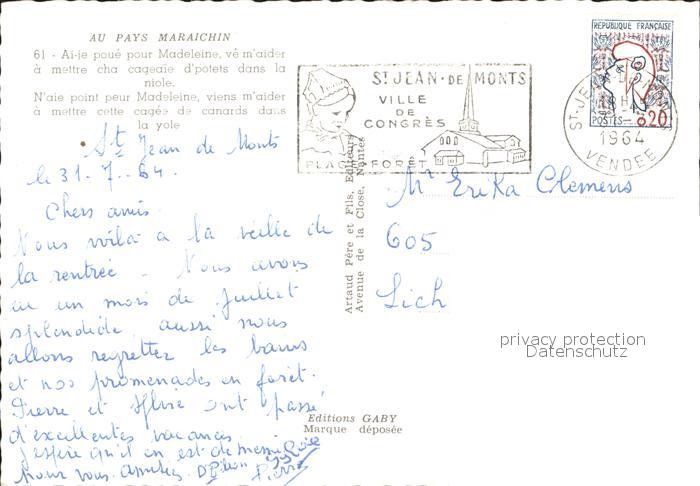 AU PAYS MARAICHIN
61 - Ai-je poué pour Madeleine, vé m'aider
à mettre cha cageaïe d'potets dans la
niole.
N'aie point peur Madeleine, viens m'aider
à mettre cette cagée de canards dans
la yole
St Jean de Monts
le 31-7-64.
Chers amis.
Nous voilà à la veille de
la rentrée - Nous avons
eu un mois de juillet
splendide aussi nous
allons regretter les bains
et nos promenades en forêt.
Pierre et ont passé
d'excellentes vacances
j'espère qu'il en est de même
pour vous. Amitiés
Pierre
Artaud Père et Fils, Editeurs
Avenue de la Close, Nantes
Editions GABY
Marque déposée
ST JEAN-DE MONTS
VILLE
DE
CONGRÈS
PLAGE FORÊT
REPUBLIQUE FRANÇAISE
POSTES
0,20
ST-JE
1964
VENDEE
Mr Erika Clemens
605
Lich
privacy protection
Datenschutz